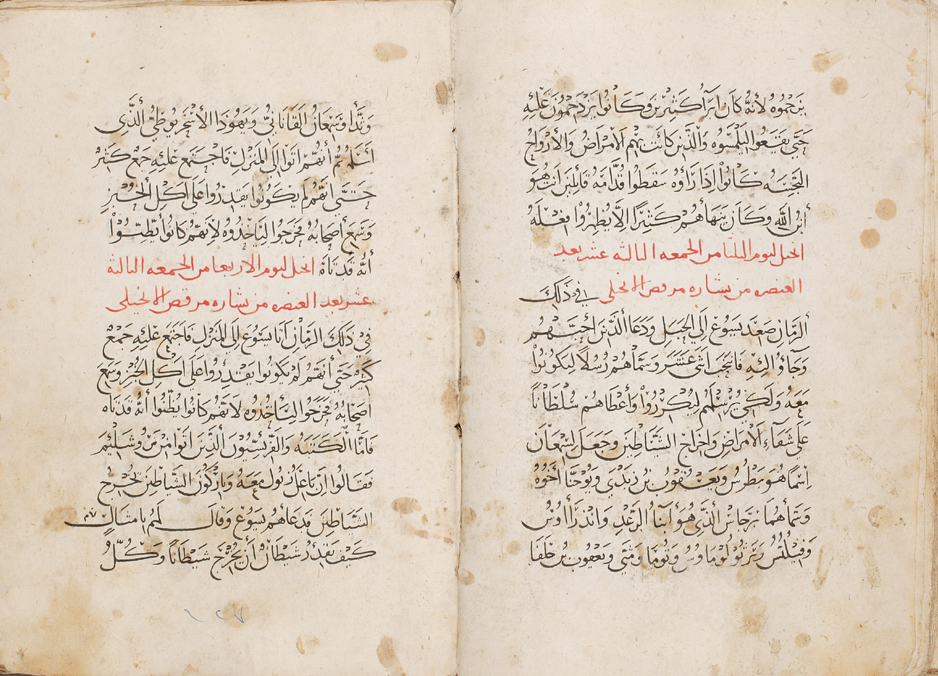 يزحموه لأنه كان ابرأ كثيرين وكانوا يزدحمون عليه
حتى يقعوا ليلمسوه والذين كانت بهم امراض والأرواح
النجسه كانوا اذا رأوه سقطوا قدامه قايلين انت هو
ابن الله وكان ينهاهم كثيرًا الا يظهروا فعله
انجيل ليوم الثلثا من الجمعه الثالثه عشر بعد
العنصره من بشاره مرقص الانجلي في ذلك
الزمان صعد يسوع الى الجبل ودعا الذين احبهم
وجاؤ اليه فانتخب اثنى عشر وسماهم رسلا ليكونوا
معه ولكي يرسلهم ليكرزوا وأعطاهم سلطانًا
على شفاء الأمراض واخراج الشياطين وجعل لشمعان
اسمًا هو بطرس ويعقوب بن زبدي ويوحنا أخوه
وسماهما نرجاس الذي هو أبنا الرعد واندراوس
وفيلبس وبرتولوماوس وتوما ومتى ويعقوب بن حلفا
وتدا وشمعان القاناني ويهودا الأسخريوطي الذي
أسلمه ثم أنهم اتوا الى المنزل فاجتمع عليه جمع كثير
حتى انهم لم يكونوا يقدروا على أكل الخبز
وسمع أصحابه فخرجوا ليأخذوه لأنهم كانوا يظنوا
أنه قد تاه انجيل ليوم الاربعا من الجمعه الثالثه
عشر بعد العنصره من بشاره مرقص الانجيلي
في ذلك الزمان أتا يسوع الى المنزل فاجتمع عليه جمع
كثير حتى أنهم لم يكونوا يقدروا على اكل الخبز وسمع
اصحابه فخرجوا ليأخذوه لانهم كانوا يظنوا أنه قد تاه
فأما الكتبه والفريسيون الذين اتوا من يروشليم
فقالوا ان باعلزبول معه وباركون الشياطين يخرج
الشياطين فدعاهم يسوع وقال لهم بامثال
كيف يقدر شيطانٌ أن يخرج شيطانًا وكلُّ